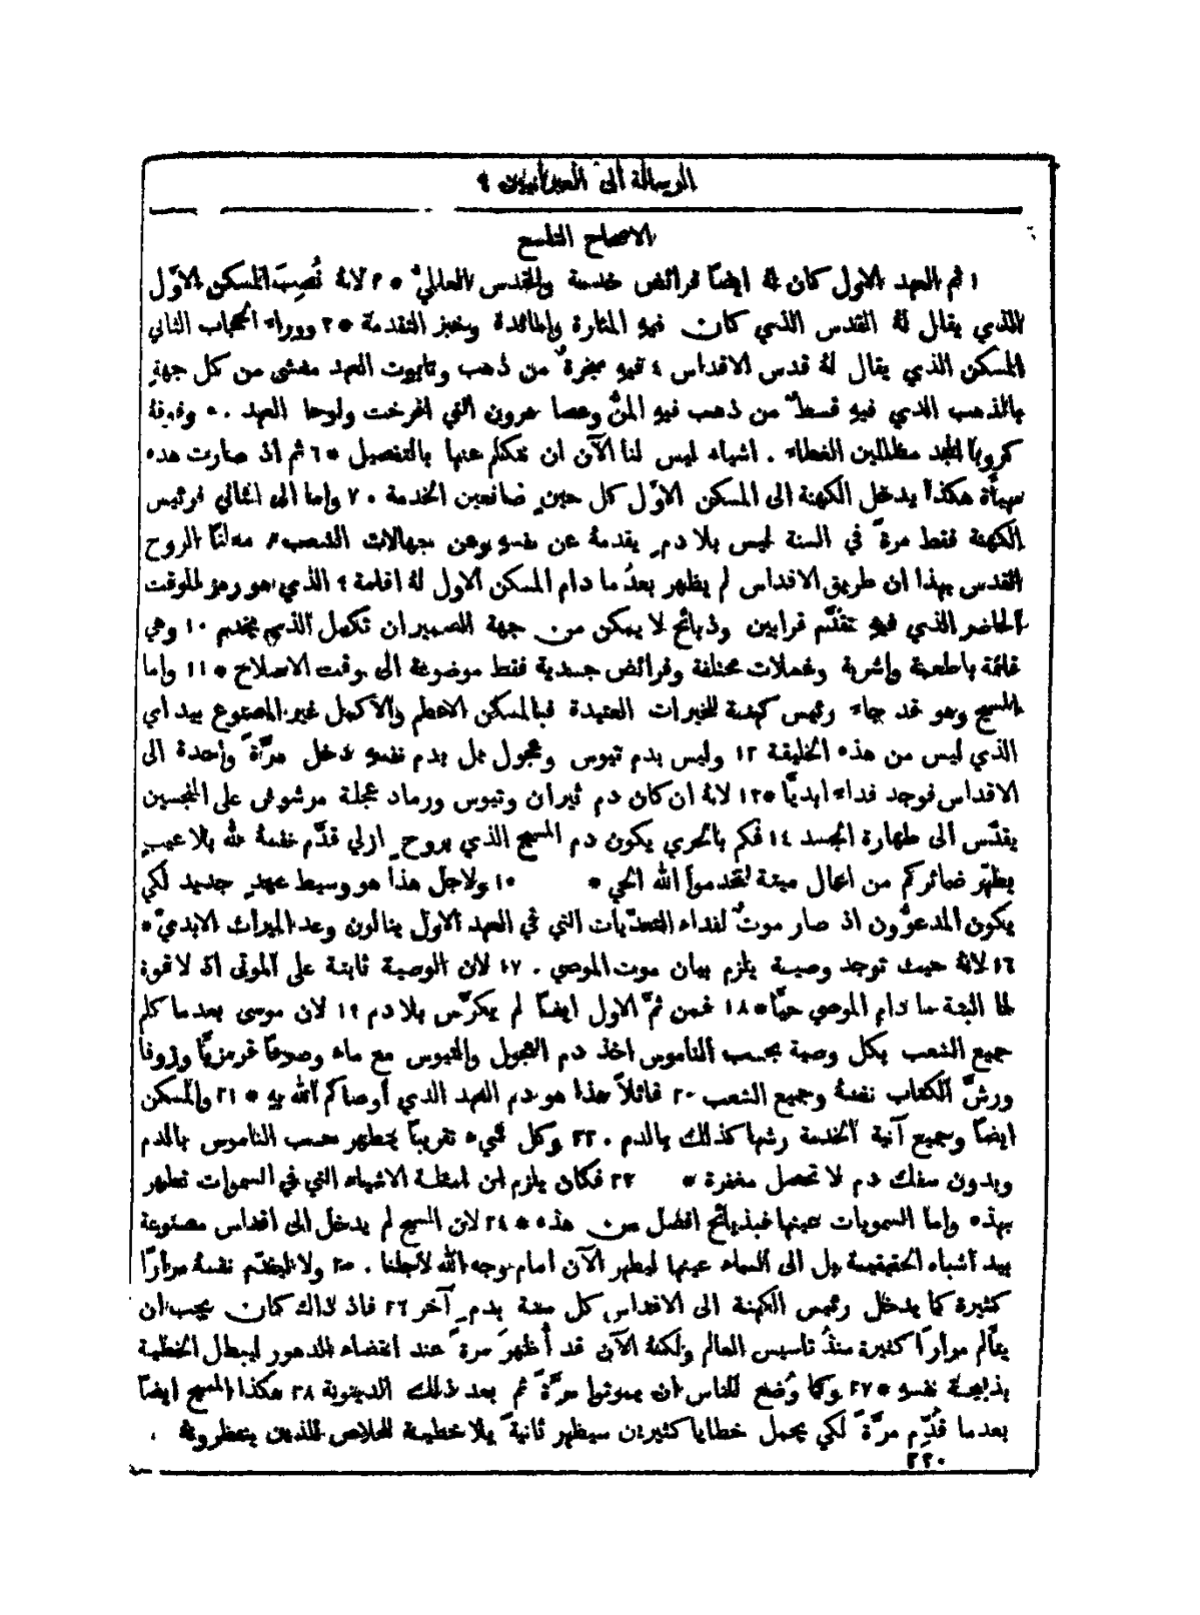 الرسالة الى العبرانيين ٩
الاصحاح التاسع
١ ثم العهد الاول كان لهُ ايضًا فرائض خدمة والقدس العالميُّ * ٢ لانهُ نُصِبَ المسكن الاوّل
الذي يقال لهُ القدس الذي كان فيهِ المنارة والمائدة وخبز التقدمة * ٣ ووراء الحجاب الثاني
المسكن الذي يقال لهُ قدس الاقداس ٤ فيهِ مبخرةٌ من ذهب وتابوت العهد مغشى من كل جهةٍ
بالذهب الذي فيهِ قسطٌ من ذهب فيهِ المنُّ وعصا هرون التي افرخت ولوحا العهد . ٥ وفوقهُ
كروبا المجد مظللين الغطاء . اشياء ليس لنا الآن ان نتكلم عنها بالتفصيل * ٦ ثم اذ صارت هذه
مهيأَة هكذا يدخل الكهنة الى المسكن الاوّل كل حينٍ صانعين الخدمة . ٧ واما الى الثاني فرئيس
الكهنة فقط مرةً في السنة ليس بلا دمٍ يقدمهُ عن نفسهِ وعن جهالات الشعب ٨ معلنًا الروح
القدس بهذا ان طريق الاقداس لم يظهر بعدُ ما دام المسكن الاول لهُ اقامة ٩ الذي هو رمز للوقت
الحاضر الذي فيهِ تقدَّم قرابين وذبائح لا يمكن من جهة الضمير ان تكمل الذي يخدم ١٠ وهي
قائمة باطعمة واشربة وغسلات مختلفة وفرائض جسدية فقط موضوعة الى وقت الاصلاح * ١١ واما
المسيح وهو قد جاء رئيس كهنة للخيرات العتيدة فبالمسكن الاعظم والاكمل غير المصنوع بيد اي
الذي ليس من هذه الخليقة ١٢ وليس بدم تيوس وعجول بل بدم نفسهِ دخل مرَّةً واحدة الى
الاقداس فوجد فداء ابديًّا * ١٣ لانهُ ان كان دم ثيران وتيوس ورماد عجلة مرشوش على المنجسين
يقدّس الى طهارة الجسد ١٤ فكم بالحري يكون دم المسيح الذي بروحٍ ازلي قدَّم نفسهُ لله بلا عيبٍ
يطهّر ضمائركم من اعمال ميتة لتخدموا الله الحي * ١٥ ولاجل هذا هو وسيط عهدٍ جديد لكي
يكون المدعوُّون اذ صار موتٌ لفداء التعدّيات التي في العهد الاوّل ينالون وعد الميراث الابديّ *
١٦ لانهُ حيث توجد وصية يلزم بيان موت الموصي . ١٧ لان الوصية ثابتة على الموتى اذ لا قوة
لها البتة ما دام الموصي حيًّا * ١٨ فمن ثمَّ الاول ايضًا لم يكرَّس بلا دم ١٩ لان موسى بعد ما كلم
جميع الشعب بكل وصية بحسب الناموس اخذ دم العجول والتيوس مع ماء وصوفًا قرمزيًّا وزوفا
ورشَّ الكتاب نفسهُ وجميع الشعب ٢٠ قائلاً هذا هو دم العهد الذي أوصاكم الله بهِ * ٢١ والمسكن
ايضًا وجميع آنية الخدمة رشها كذلك بالدم . ٢٢ وكل شيء تقريبًا يتطهر حسب الناموس بالدم
وبدون سفك دم لا تحصل مغفرة * ٢٣ فكان يلزم ان امثلة الاشياء التي في السموات تطهر
بهذه واما السمويات عينها فبذبائح افضل من هذه * ٢٤ لان المسيح لم يدخل الى اقداس مصنوعة
بيد اشباه الحقيقية بل الى السماء عينها ليظهر الآن امام وجه الله لاجلنا . ٢٥ ولا ليقدّم نفسهُ مرارًا
كثيرة كما يدخل رئيس الكهنة الى الاقداس كل سنة بدمِ آخر ٢٦ فاذ ذاك كان يجب ان
يتألم مرارًا كثيرة منذُ تاسيس العالم ولكنهُ الآن قد أُظهرَ مرةً عند انقضاء الدهور ليبطل الخطية
بذبيحة نفسهِ * ٢٧ وكما وُضع للناس ان يموتوا مرَّةً ثم بعد ذلك الدينونة ٢٨ هكذا المسيح ايضًا
بعد ما قُدِّم مرَّةً لكي يحمل خطايا كثيرين سيظهر ثانيةً بلا خطية للخلاص للذين ينتظرونهُ .
٣٢٠